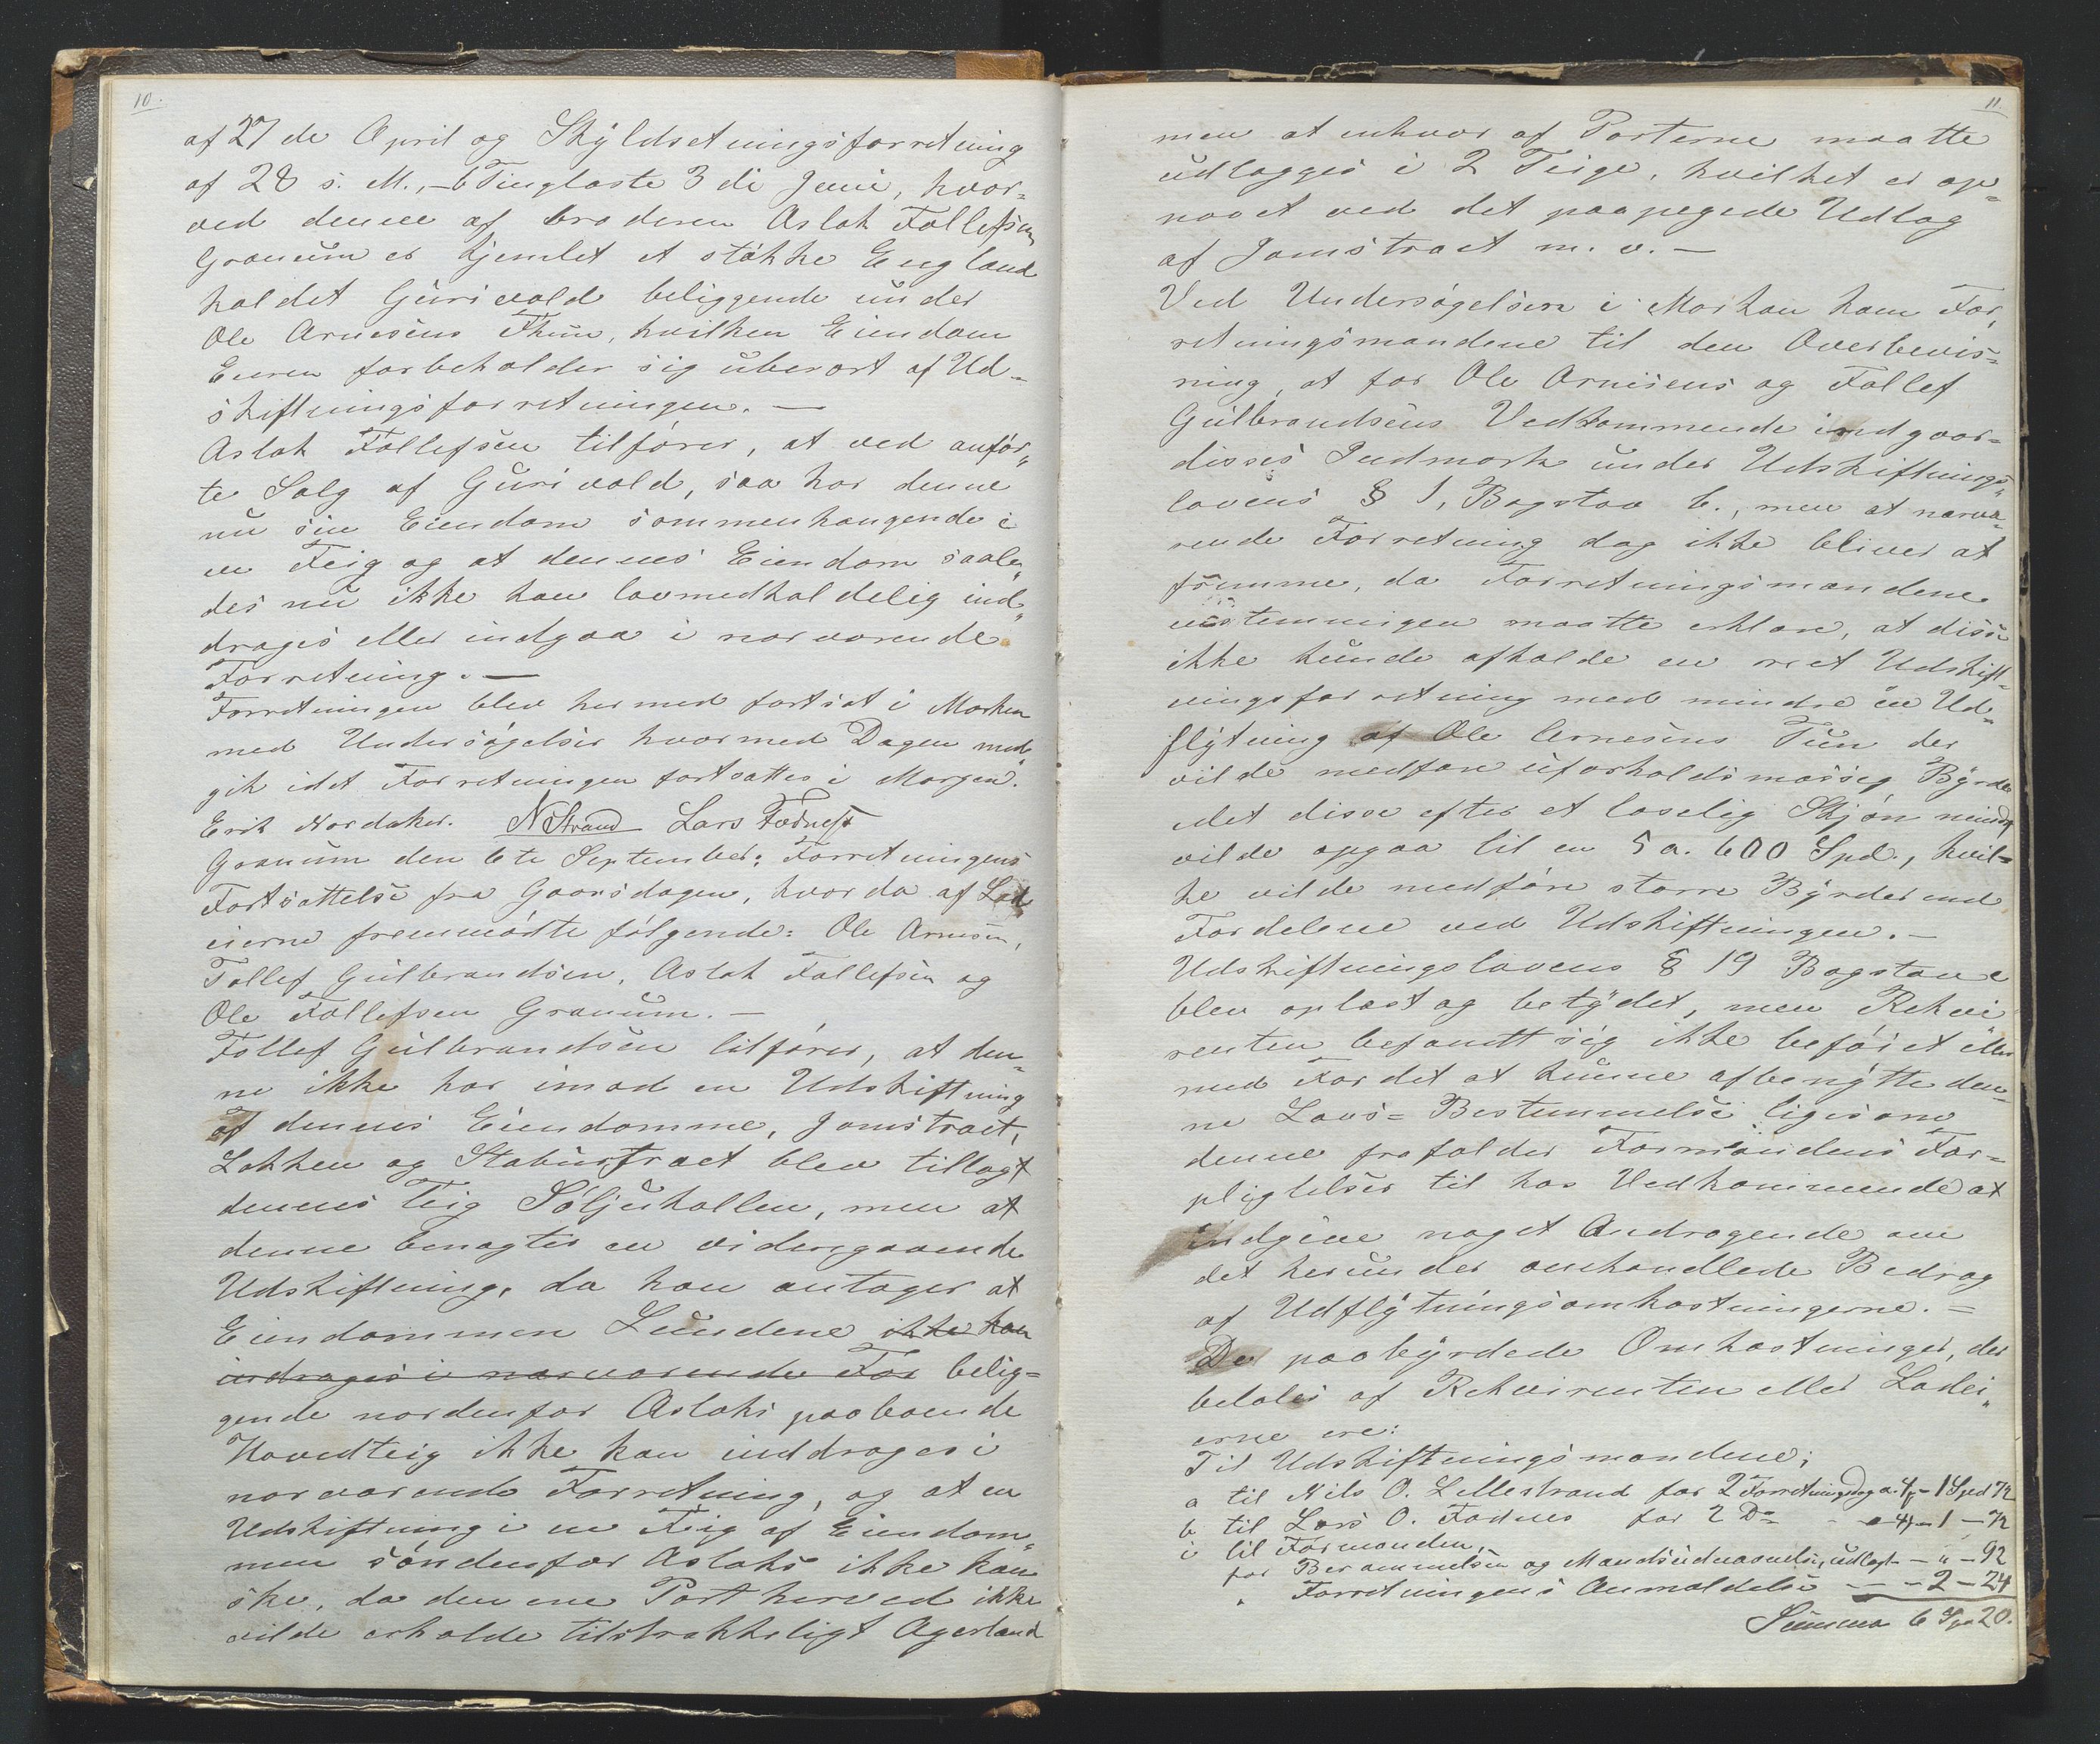 10.
af 27de April og Skyldsetningsforretning
af 28 s. M., – b Tinglæste 3die Juni, hvor-
ved denne af broderen Aslak Tollefsen
Granum er kjendet et støkke England
kaldet Gurivold beliggende under
Ole Arnesens Thun, hvilken Eiendom
Eieren forbeholder sig uberørt af Ud-
skiftningsforretningen. —
Aslak Tollefsen tilfører, at ved anfør-
te Salg af Gurivold, saa har denne
nu sin Eiendom sammenhængende i
en Teig og at dennes Eiendom saale-
des nu ikke kan lovmedholdelig ind-
drages eller indgaa i nærværende
Forretning. —
Forretningen blev hermed fortsat i Marken
med Undersøgelser hvormed Dagen med-
gik idet Forretningen fortsættes i Morgen.
Erik Nordaker. N Strand Lars Fodnes
Granum den 6te September: Forretningens
Fortsættelse fra Gaarsdagen, hvor da af Lod-
eierne fremmødte følgende: Ole Arnesen,
Tollef Gulbrandsen, Aslak Tollefsen og
Ole Tollefsen Granum. —
Tollef Gulbrandsen tilfører, at den-
ne ikke har imod en Udskiftning
af dennes Eiendomme, Jonstræt,
Løkken og Stabustræet blev tillagt
dennes Teig Søljuhollen, men at
denne benægter en videregaaende
Udskiftning, da han antager at
Eiendommen Lundene ikke kan
indrages i nærværende For belig-
gende nordenfor Aslaks paaboende
Hovedteig ikke kan inddrages i
nærværende Forretning, og at en
Udskiftning i en Teig af Eiendom-
men søndenfor Aslaks ikke kan
ske, da den ene Part herved ikke
vilde erholde tilstrækkeligt Agerland
11.
men at enhver af Parterne maatte
udlægges i 2 Teige, hvilket er op-
naaet ved det paapegede Udlæg
af Jonstræt m. v. —
Ved Undersøgelsen i Marken kom For-
retningsmændene til den Overbevis-
ning, at for Ole Arnesens og Tollef
Gulbrandsens Vedkommende indgaar
disses Indmark under Udskiftnings-
lovens § 1, Bogstav b., men at nærvæ-
rende Forretning dog ikke bliver at
fremme, da Forretningsmændene
enstemmigen maatte erklære, at disse
ikke kunde afholde en ret Udskift-
ningsforretning med mindre en Ud-
flytning af Ole Arnesens Tun der
vilde medføre uforholdsmæssig Byrde
idet disse efter et løselig Skjøn mindst
vilde opgaa til en 5 a. 600 Spd., hvil-
ke vilde medføre større Byrder end
Fordelene ved Udskiftningen. —
Udskiftningslovens § 19 Bogstav e
blev oplæst og betydet, men Rekvi-
renten befandt sig ikke beføiet eller
med Fordel at kunne afbenytte den-
ne Lovs-Bestemmelse ligesom
denne frafalder Formandens For-
pligtelser til hos Vedkommende at
indgive noget Andragende om
det herunder omhandlede Bedrag
af Udflytningsomkostningerne. —
De paabyrdede Omkostninger, der
betales af Rekvirenten eller Lodei-
erne ere:
Til Udskiftningsmændene;
a til Nils O. Lillestrand for 2 Forretningsdag a. 4 – 1 Spd 72
b til Lars O. Fodnes for 2 Do - a 4 – 1 – 72
c til Formanden,
for Berammelsen og Mandsudnævnelse, udlagt – " – 92
" Forretningens Anmældelse — – 2 – 24
Summa 6 Spd 20.